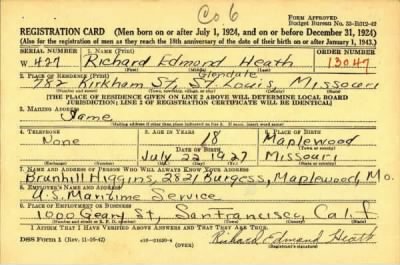 Co 6
Form Approved
Budget Bureau No. 33-R012-42
REGISTRATION CARD (Men born on or after July 1, 1924, and on or before December 31, 1924)
(Also for the registration of men as they reach the 18th anniversary of the date of their birth on or after January 1, 1943.)
SERIAL NUMBER
1. NAME (Print)
ORDER NUMBER
W 427
Richard Edmond Heath
13047
(First) (Middle) (Last)
2. PLACE OF RESIDENCE (Print)
Glendale,
782 Kirkham St, St. Louis Missouri
(Number and street) (Town, township, village, or city) (County) (State)
[THE PLACE OF RESIDENCE GIVEN ON LINE 2 ABOVE WILL DETERMINE LOCAL BOARD
JURISDICTION; LINE 2 OF REGISTRATION CERTIFICATE WILL BE IDENTICAL]
3. MAILING ADDRESS
Same
[Mailing address if other than place indicated on line 2. If same, insert word same]
4. TELEPHONE
18
6. PLACE OF BIRTH
None
Maplewood
DATE OF BIRTH
July 22 1927
Missouri
7. NAME AND ADDRESS OF PERSON WHO WILL ALWAYS KNOW YOUR ADDRESS
Brunhil Higgins, 2821 Burgess, Maplewood, Mo.
8. EMPLOYER'S NAME AND ADDRESS
U.S. Maritime Service
9. PLACE OF EMPLOYMENT OR BUSINESS
1000 Geary St, San Francisco, Calif
(Number and street or R. F. D. number) (Town) (County) (State)
I AFFIRM THAT I HAVE VERIFIED ABOVE ANSWERS AND THAT THEY ARE TRUE.
DSS Form 1 (Rev. 11-16-42)
(OVER)
Richard Edmond Heath
(Registrant's signature)